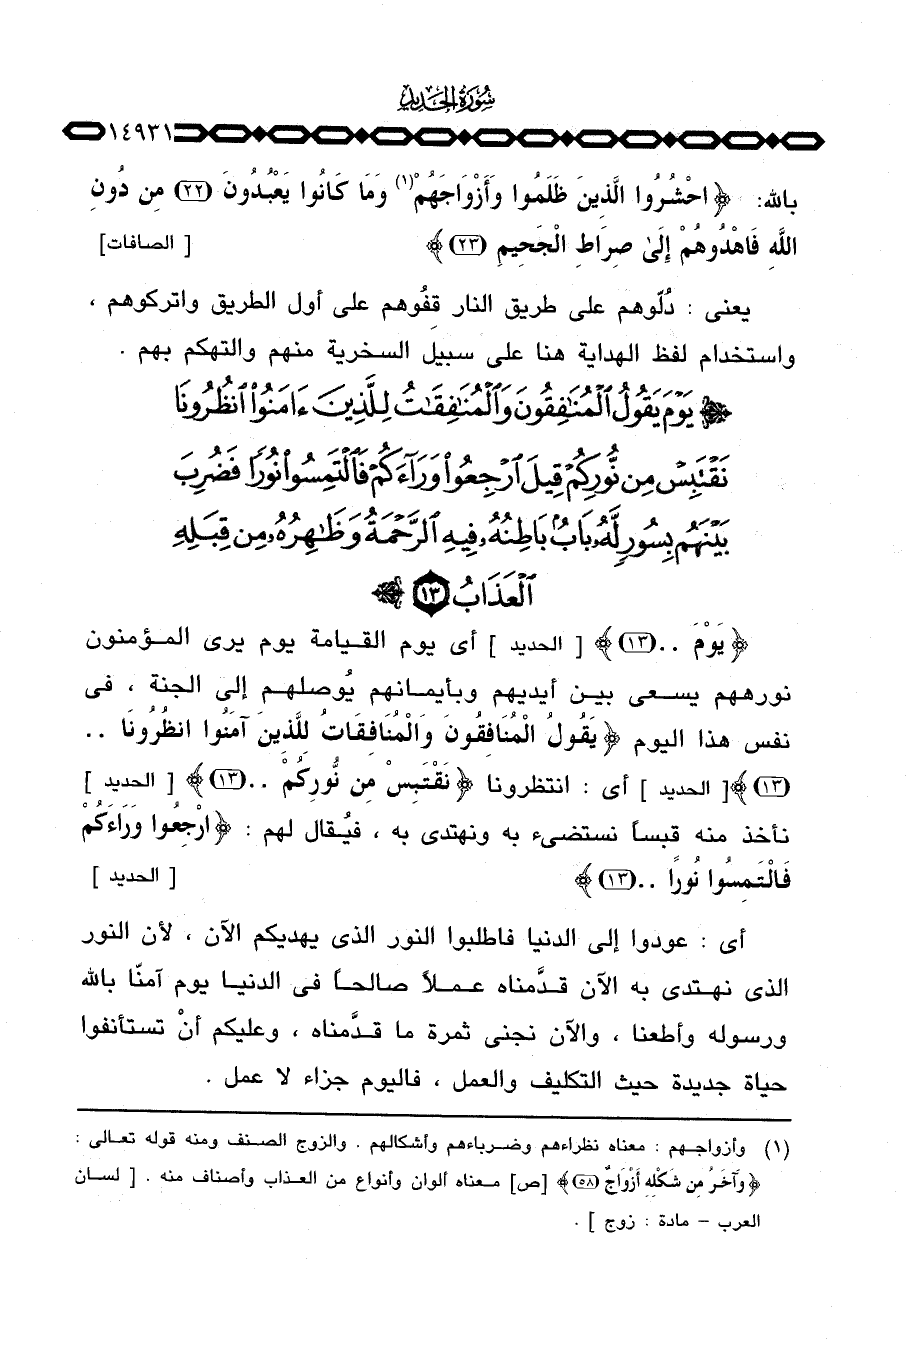 سورة الحديد
١٤٩٣١
بالله: ﴿احْشُرُوا الَّذِينَ ظَلَمُوا وَأَزْوَاجَهُمْ(١) وَمَا كَانُوا يَعْبُدُونَ (٢٢) مِن دُونِ
اللَّهِ فَاهْدُوهُمْ إِلَىٰ صِرَاطِ الْجَحِيمِ (٢٣)﴾ [ الصافات]
يعنى : دُلّوهم على طريق النار قفُوهم على أول الطريق واتركوهم ،
واستخدام لفظ الهداية هنا على سبيل السخرية منهم والتهكم بهم .
﴿ يَوْمَ يَقُولُ ٱلْمُنَٰفِقُونَ وَٱلْمُنَٰفِقَٰتُ لِلَّذِينَ ءَامَنُوا۟ ٱنظُرُونَا
نَقْتَبِسْ مِن نُّورِكُمْ قِيلَ ٱرْجِعُوا۟ وَرَآءَكُمْ فَٱلْتَمِسُوا۟ نُورًا فَضُرِبَ
بَيْنَهُم بِسُورٍ لَّهُۥ بَابٌۢ بَاطِنُهُۥ فِيهِ ٱلرَّحْمَةُ وَظَٰهِرُهُۥ مِن قِبَلِهِ
ٱلْعَذَابُ ١٣ ﴾
﴿يَوْمَ ..(١٣)﴾ [ الحديد ] أى يوم القيامة يوم يرى المؤمنون
نورهم يسعى بين أيديهم وبأيمانهم يُوصلهم إلى الجنة ، فى
نفس هذا اليوم ﴿يَقُولُ الْمُنَافِقُونَ وَالْمُنَافِقَاتُ لِلَّذِينَ آمَنُوا انظُرُونَا ..
(١٣)﴾[ الحديد ] أى : انتظرونا ﴿نَقْتَبِسْ مِن نُّورِكُمْ ..(١٣)﴾ [ الحديد ]
نأخذ منه قبساً نستضىء به ونهتدى به ، فيُقال لهم : ﴿ارْجِعُوا وَرَاءَكُمْ
فَالْتَمِسُوا نُورًا ..(١٣)﴾ [ الحديد ]
أى : عودوا إلى الدنيا فاطلبوا النور الذى يهديكم الآن ، لأن النور
الذى نهتدى به الآن قدَّمناه عملاً صالحاً فى الدنيا يوم آمنّا بالله
ورسوله وأطعنا ، والآن نجنى ثمرة ما قدَّمناه ، وعليكم أنْ تستأنفوا
حياة جديدة حيث التكليف والعمل ، فاليوم جزاء لا عمل .
(١) وأزواجهم : معناه نظراءهم وضرباءهم وأشكالهم . والزوج الصنف ومنه قوله تعالى :
﴿وَآخَرُ مِن شَكْلِهِ أَزْوَاجٌ (٥٨)﴾ [ص] معناه ألوان وأنواع من العذاب وأصناف منه . [ لسان
العرب – مادة : زوج ] .